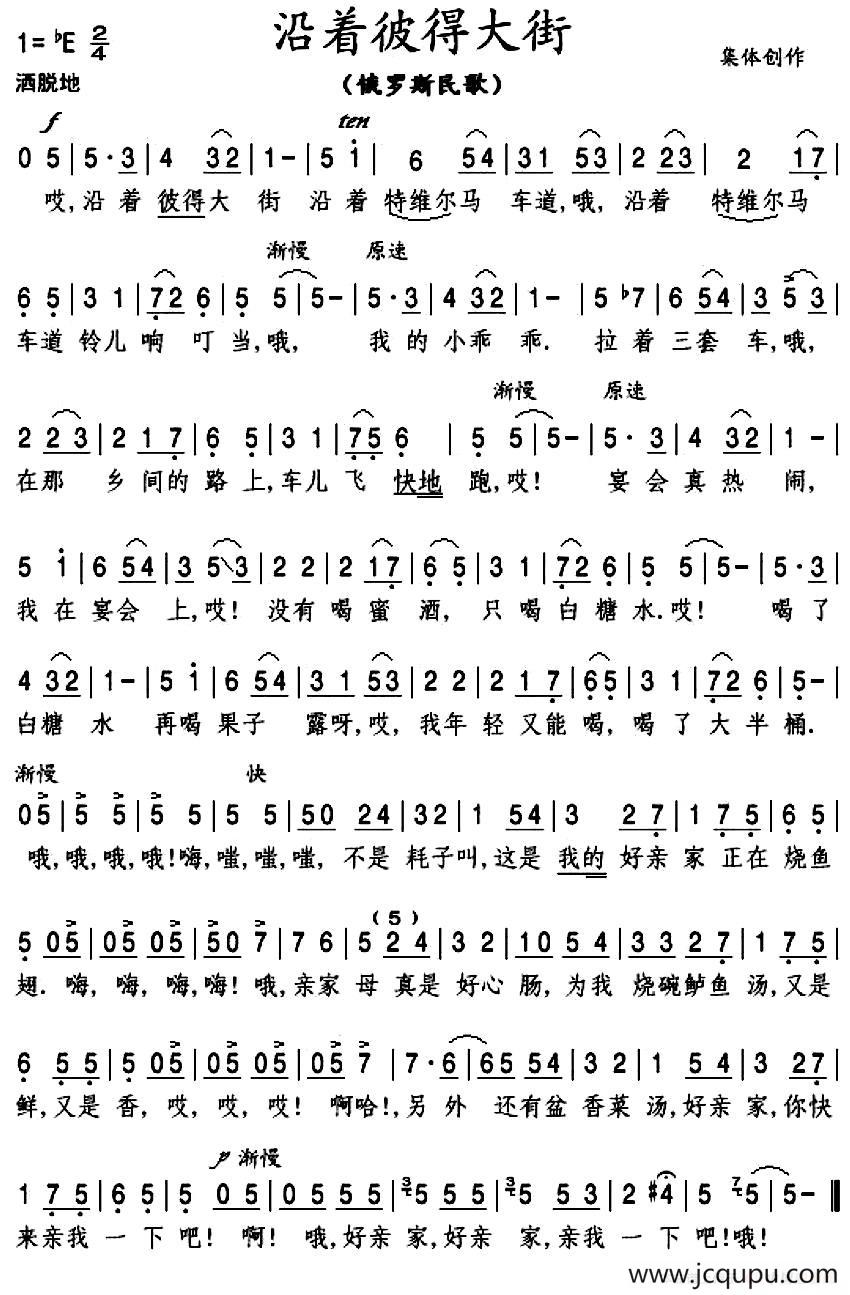 沿着彼得大街
1=♭E 2/4
集体创作
洒脱地
（俄罗斯民歌）
f ten
0 5|5·3|4 32|1-|5 i|6 54|31 53|2 23|2 17|
哎,沿着彼得大街沿着特维尔马车道,哦,沿着特维尔马
渐慢 原速
6 5|3 1|72 6|5 5|5-|5·3|4 32|1-|5 ♭7|6 54|3 53|
车道铃儿响叮当,哦,我的小乖乖.拉着三套车,哦,
渐慢 原速
2 23|2 17|6 5|3 1|75 6|5 5|5-|5·3|4 32|1-|
在那乡间的路上,车儿飞快地跑,哎!宴会真热闹,
5 i|6 54|3 53|2 2|2 17|6 5|3 1|72 6|5 5|5-|5·3|
我在宴会上,哎!没有喝蜜酒,只喝白糖水.哎!喝了
4 32|1-|5 i|6 54|31 53|2 2|2 17|65|3 1|72 6|5-|
白糖水再喝果子露呀,哎,我年轻又能喝,喝了大半桶.
渐慢 快
05|5 5|5 5|5 5|50 24|32|1 54|3 27|75|6 5|
哦,哦,哦,哦!嗨,嗤,嗤,嗤,不是耗子叫,这是我的好亲家正在烧鱼
(5)
5 05|05 05|50 7|7 6|5 24|3 2|10 54|33 27|1 75|
翅.嗨,嗨,嗨,嗨!哦,亲家母真是好心肠,为我烧碗鲈鱼汤,又是
6 55|5 05|05 05|05 7|7·6|65 54|32|1 54|3 27|
鲜,又是香,哎,哎,哎!啊哈!,另外还有盆香菜汤,好亲家,你快
p 渐慢
1 75|6 5|5 05|05 55|35 55|35 53|2 #4|5 75|5-‖
来亲我一下吧!啊!哦,好亲家,好亲家,亲我一下吧!哦!
www.jcqupu.com